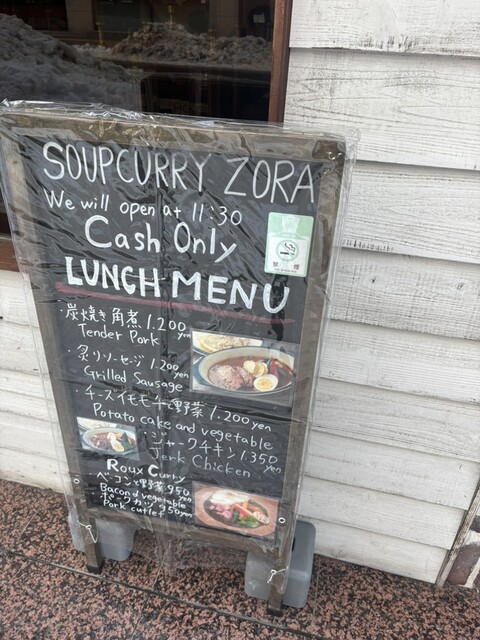 SOUPCURRY ZORA
We will open at 11:30
Cash Only
禁煙
LUNCH MENU
・炭焼き角煮 1.200 yen
Tender Pork
・炙りソーセージ 1.200 yen
Grilled Sausage
・チーズイモモチと野菜 1.200 yen
Potato cake and vegetable
・ジャークチキン 1.350 yen
Jerk Chicken
Roux Curry
・ベーコンと野菜 950 yen
Bacon & vegetable
・ポークカツ 950 yen
Pork cutlet